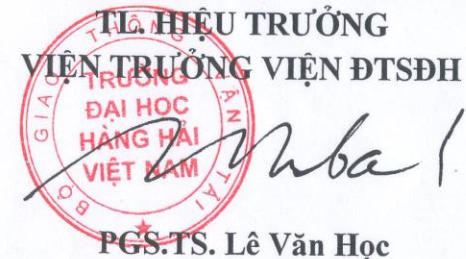 TL. HIỆU TRƯỞNG
VIỆN TRƯỞNG VIỆN ĐTSĐH
BỘ GIAO THÔNG VẬN TẢI
TRƯỜNG
ĐẠI HỌC
HÀNG HẢI
VIỆT NAM
PGS.TS. Lê Văn Học